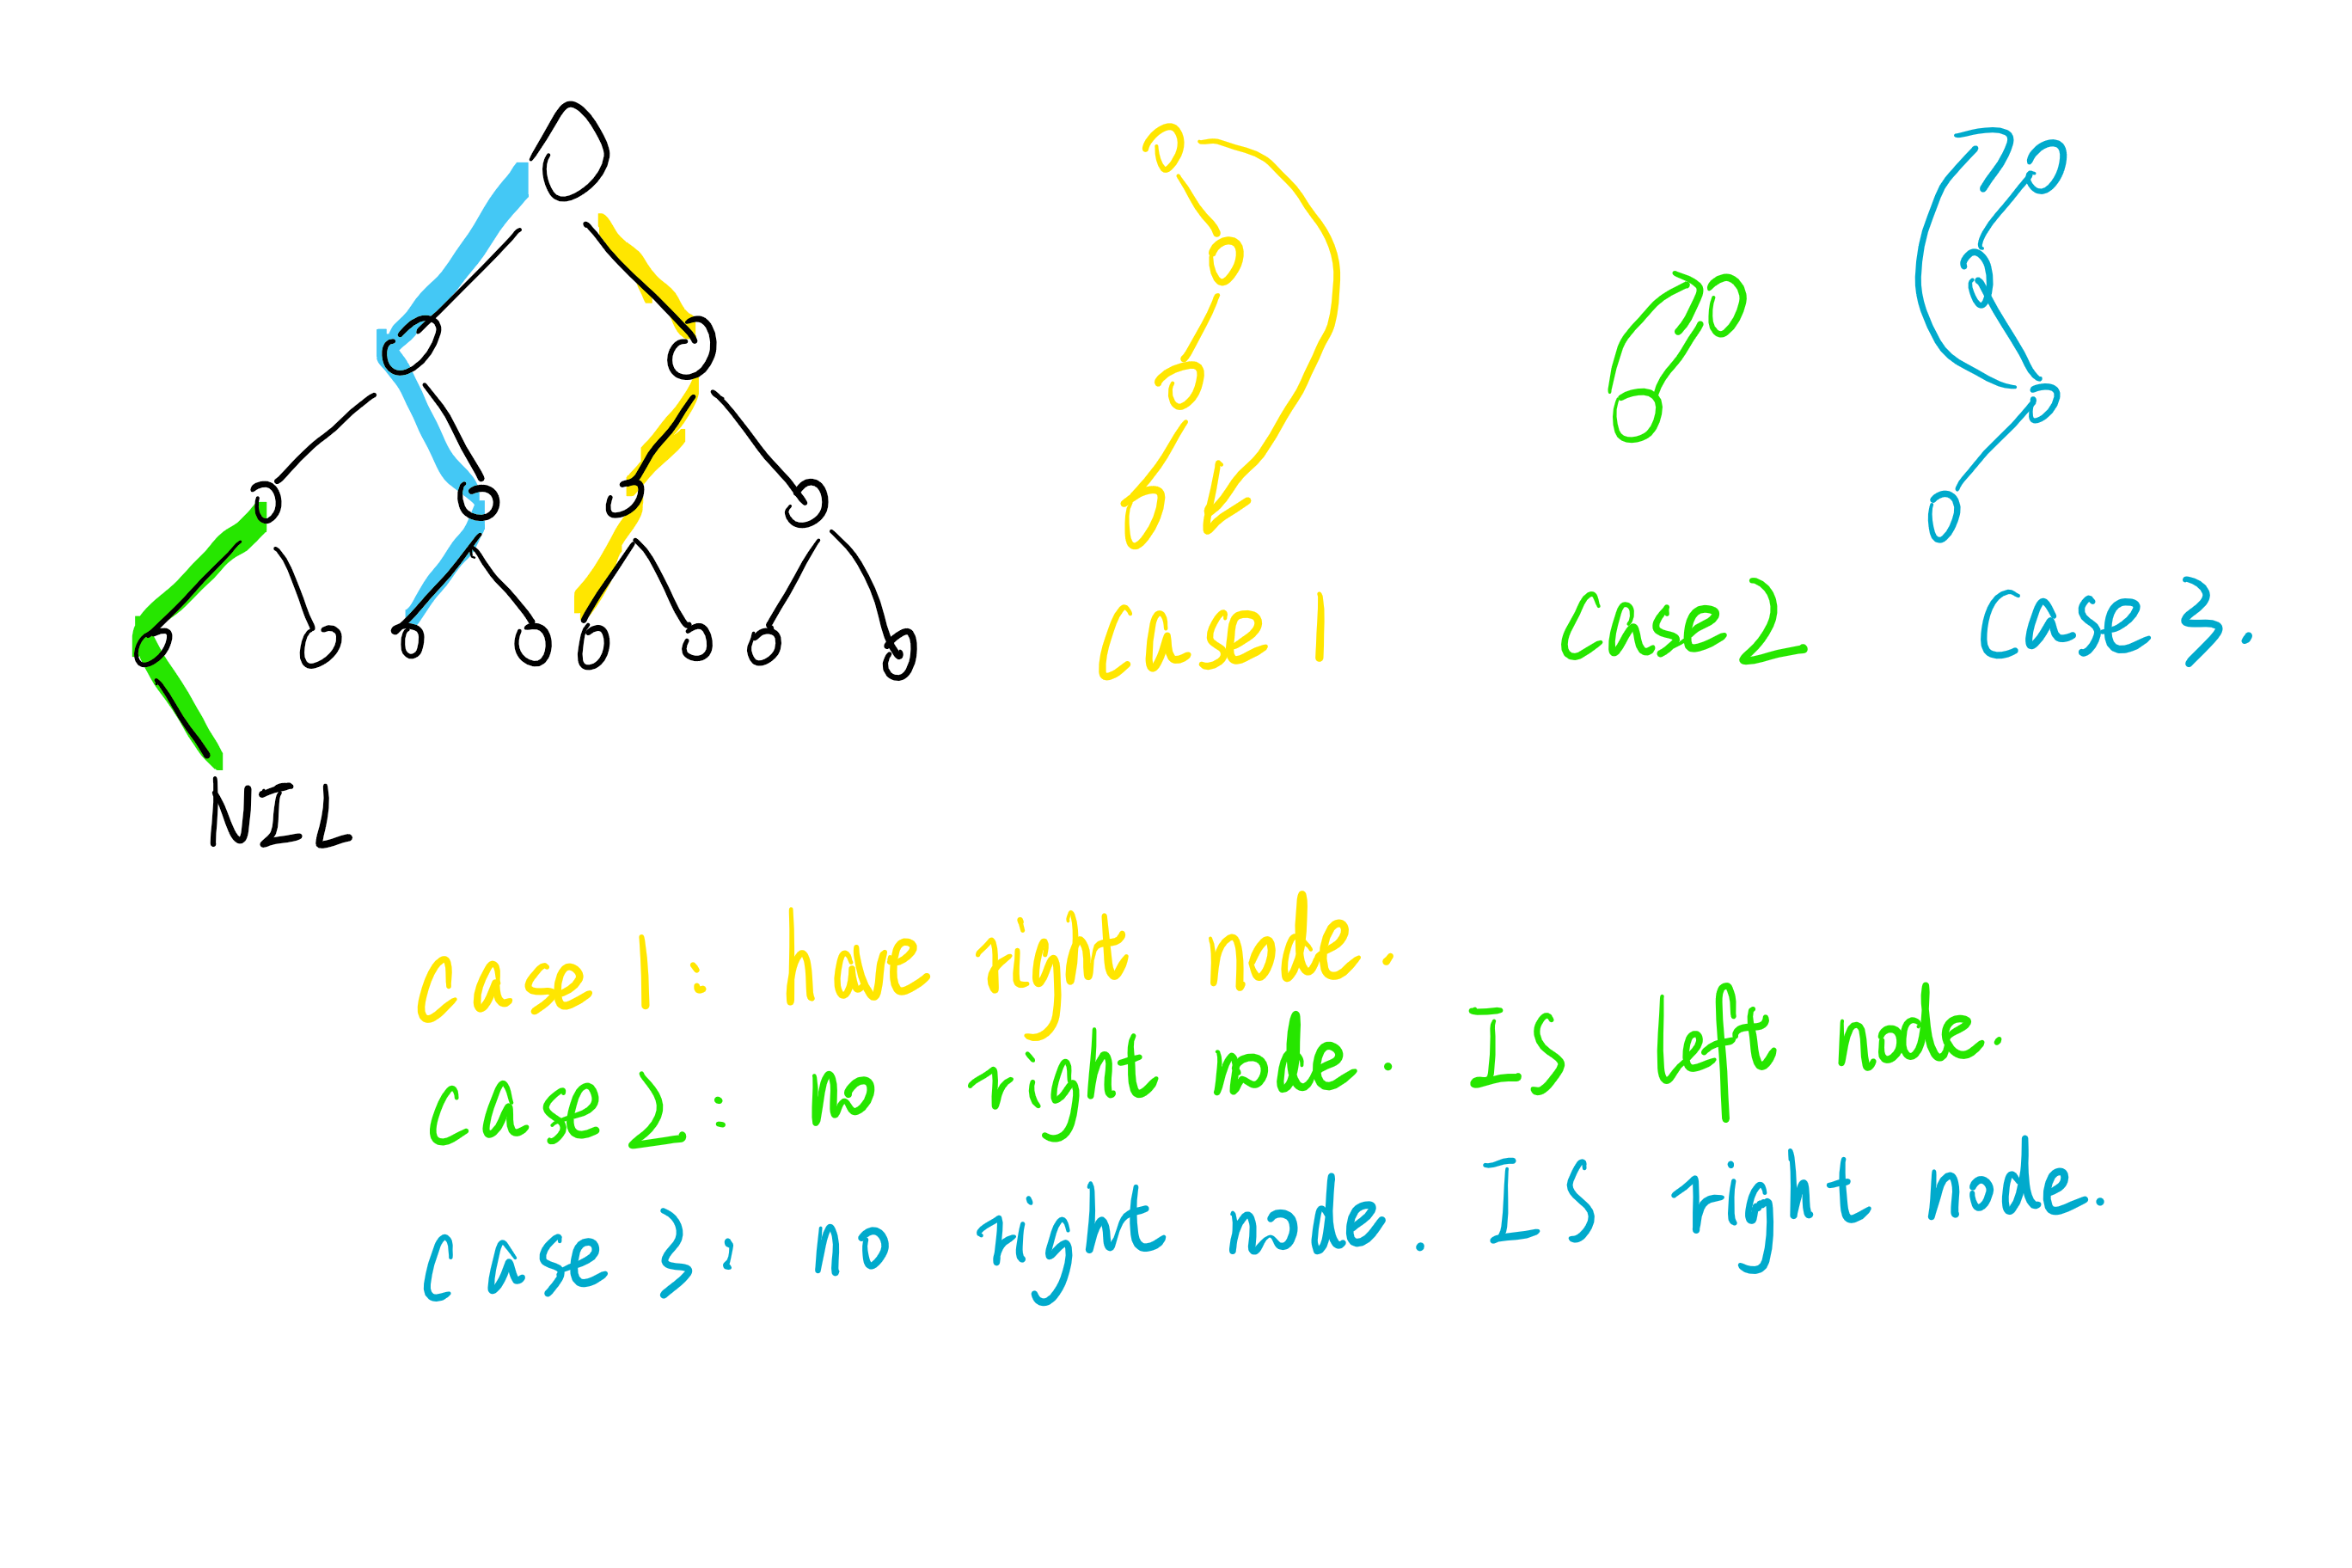 case 1
case 2
case 3.
NIL
case 1: have right node.
case 2: no right node. Is left node.
case 3: no right node. Is right node.